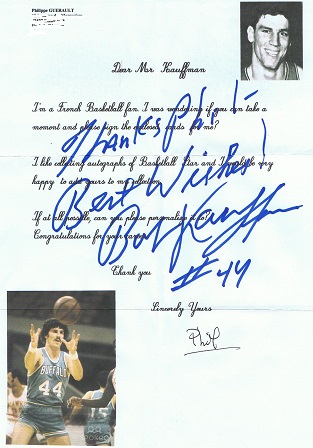 Philippe GUERAULT
Dear Mr Kauffman
I'm a French Basketball fan. I was wondering if you can take a
moment and please sign the enclosed cards for me!
I like collecting autographs of Basketball Star and I would be very
happy to add yours to my collection.
If at all possible, can you please personalize it?
Congratulations for your career
Thank you
Sincerely Yours
Phil
Thanks Phil -
Best Wishes!
Bob Kauffman
#44
BUFFALO
44